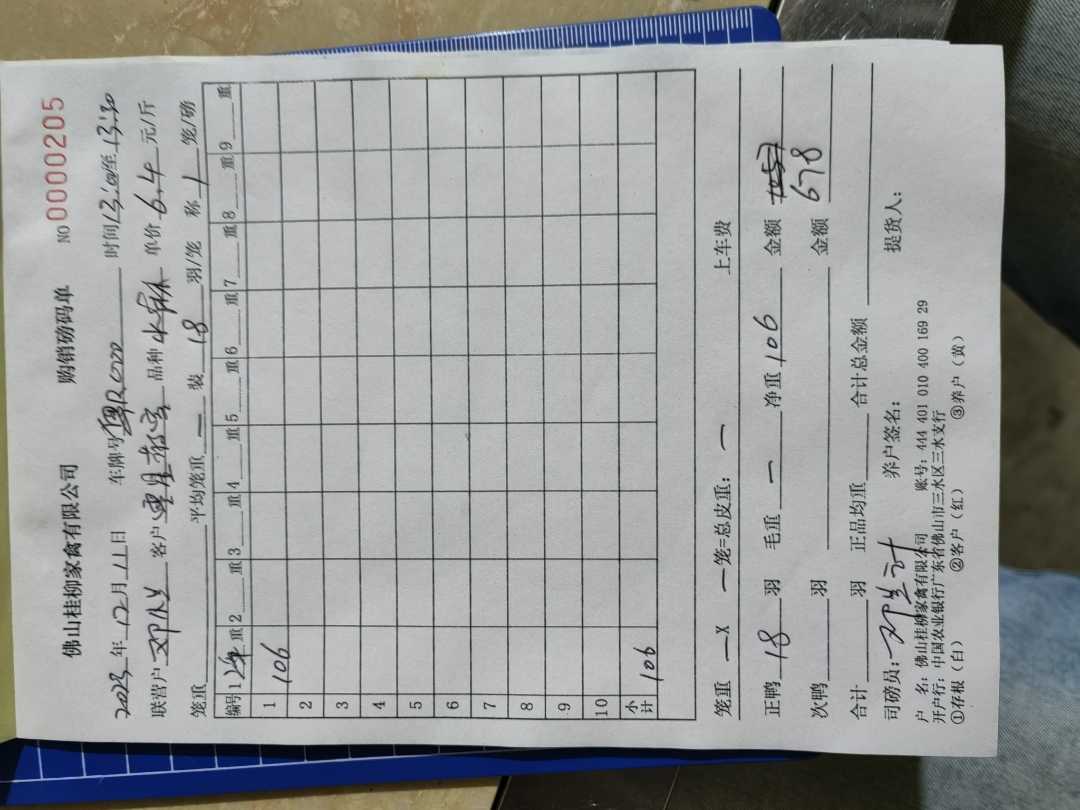 佛山桂柳家禽有限公司 购销磅码单 NO 0000205
2023年12月11日 车牌号 时间13:00至13:30
联营户 客户 品种 单价6.4元/斤
笼重 平均笼重 一 装18羽/笼 称1笼/磅
编号 1 重 2 重 3 重 4 重 5 重 6 重 7 重 8 重 9 重
1 106
2
3
4
5
6
7
8
9
10
小计 106
笼重 一 X 一 笼=总皮重: 一 上车费
正鸭 18 羽 毛重 一 净重 106 金额
次鸭 羽 金额 678
合计 羽 正品均重 合计总金额
司磅员: 养户签名: 提货人:
户 名: 佛山桂柳家禽有限公司 账号: 444 401 010 400 169 29
开户行: 中国农业银行广东省佛山市三水区三水支行
①存根（白） ②客户（红） ③养户（黄）